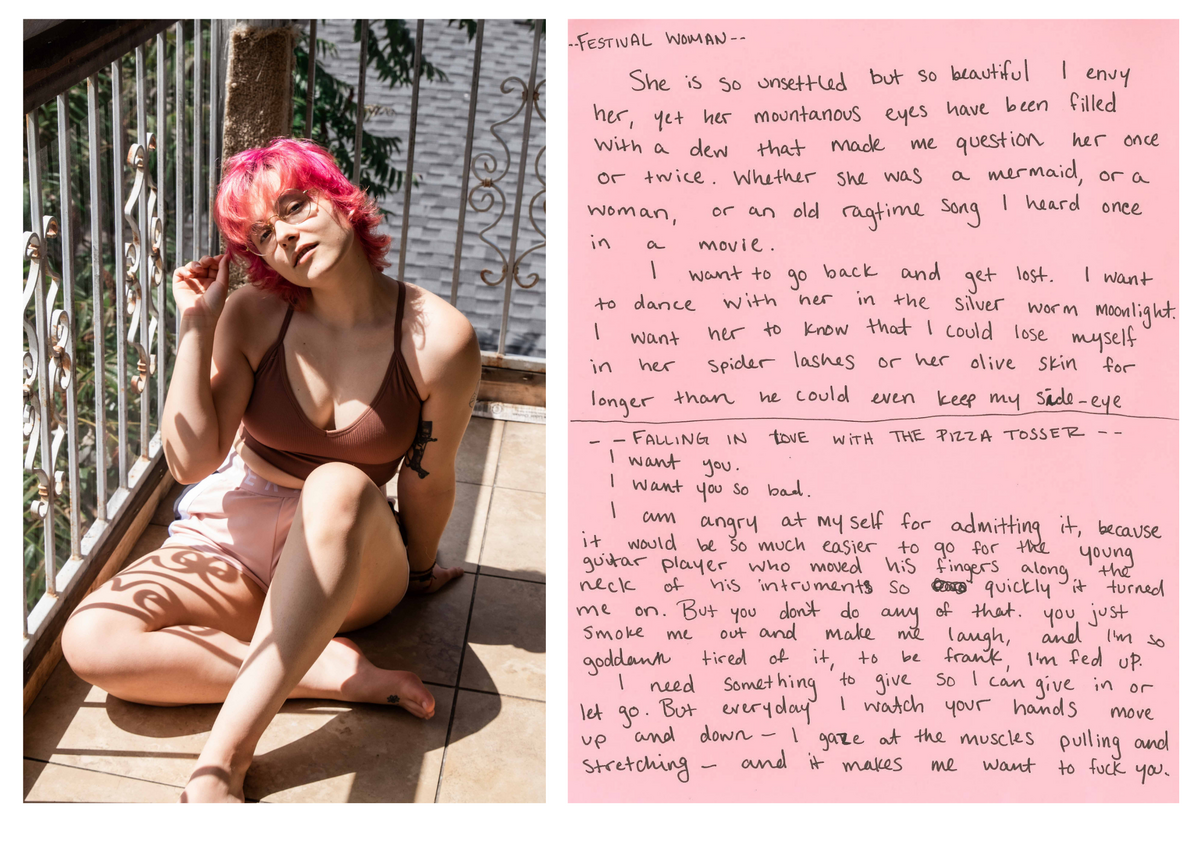 --FESTIVAL WOMAN--
She is so unsettled but so beautiful I envy
her, yet her mountanous eyes have been filled
with a dew that made me question her once
or twice. Whether she was a mermaid, or a
woman, or an old ragtime song I heard once
in a movie.
I want to go back and get lost. I want
to dance with her in the silver worm moonlight.
I want her to know that I could lose myself
in her spider lashes or her olive skin for
longer than he could even keep my side-eye
-- FALLING IN LOVE WITH THE PIZZA TOSSER --
I want you.
I want you so bad.
I am angry at myself for admitting it, because
it would be so much easier to go for the young
guitar player who moved his fingers along the
neck of his intruments so quickly it turned
me on. But you don't do any of that. you just
smoke me out and make me laugh, and I'm so
goddamn tired of it, to be frank, I'm fed up.
I need something to give so I can give in or
let go. But everyday I watch your hands move
up and down - I gaze at the muscles pulling and
stretching - and it makes me want to fuck you.